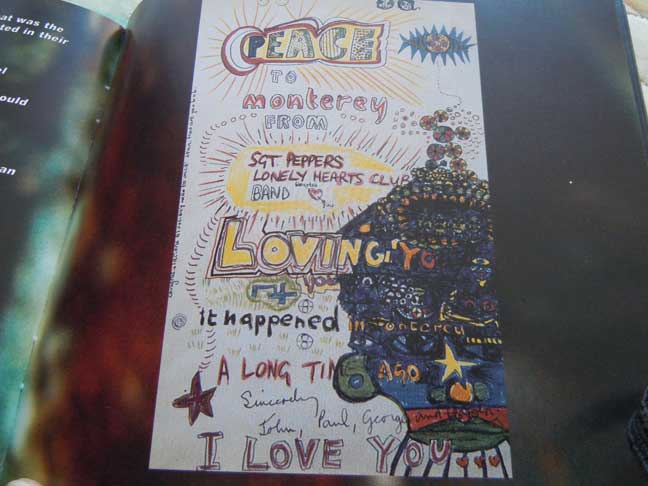 at was the
ted in their
el
ould
an
PEACE
TO
monterey
FROM
SGT PEPPERS
LONELY HEARTS CLUB
BAND
LOVING YO
You
it happened in monterey
A LONG TIME AGO
Sincerely
John, Paul, George and
I LOVE YOU